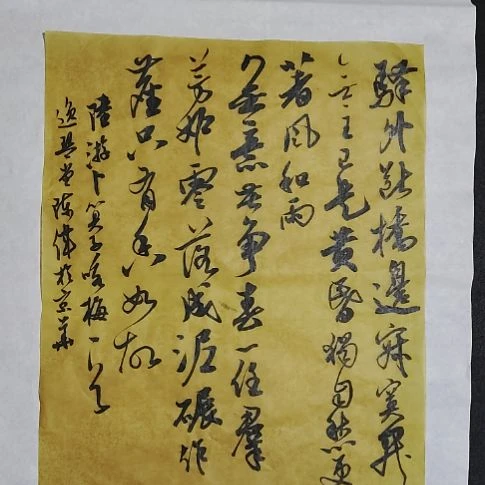 驛外断橋邊寂寞開
無主已是黄昏獨自愁更
著風和雨
無意苦争春一任羣
芳妒零落成泥碾作
塵只有香如故
陸游卜算子咏梅一首
堂陳偉於京華